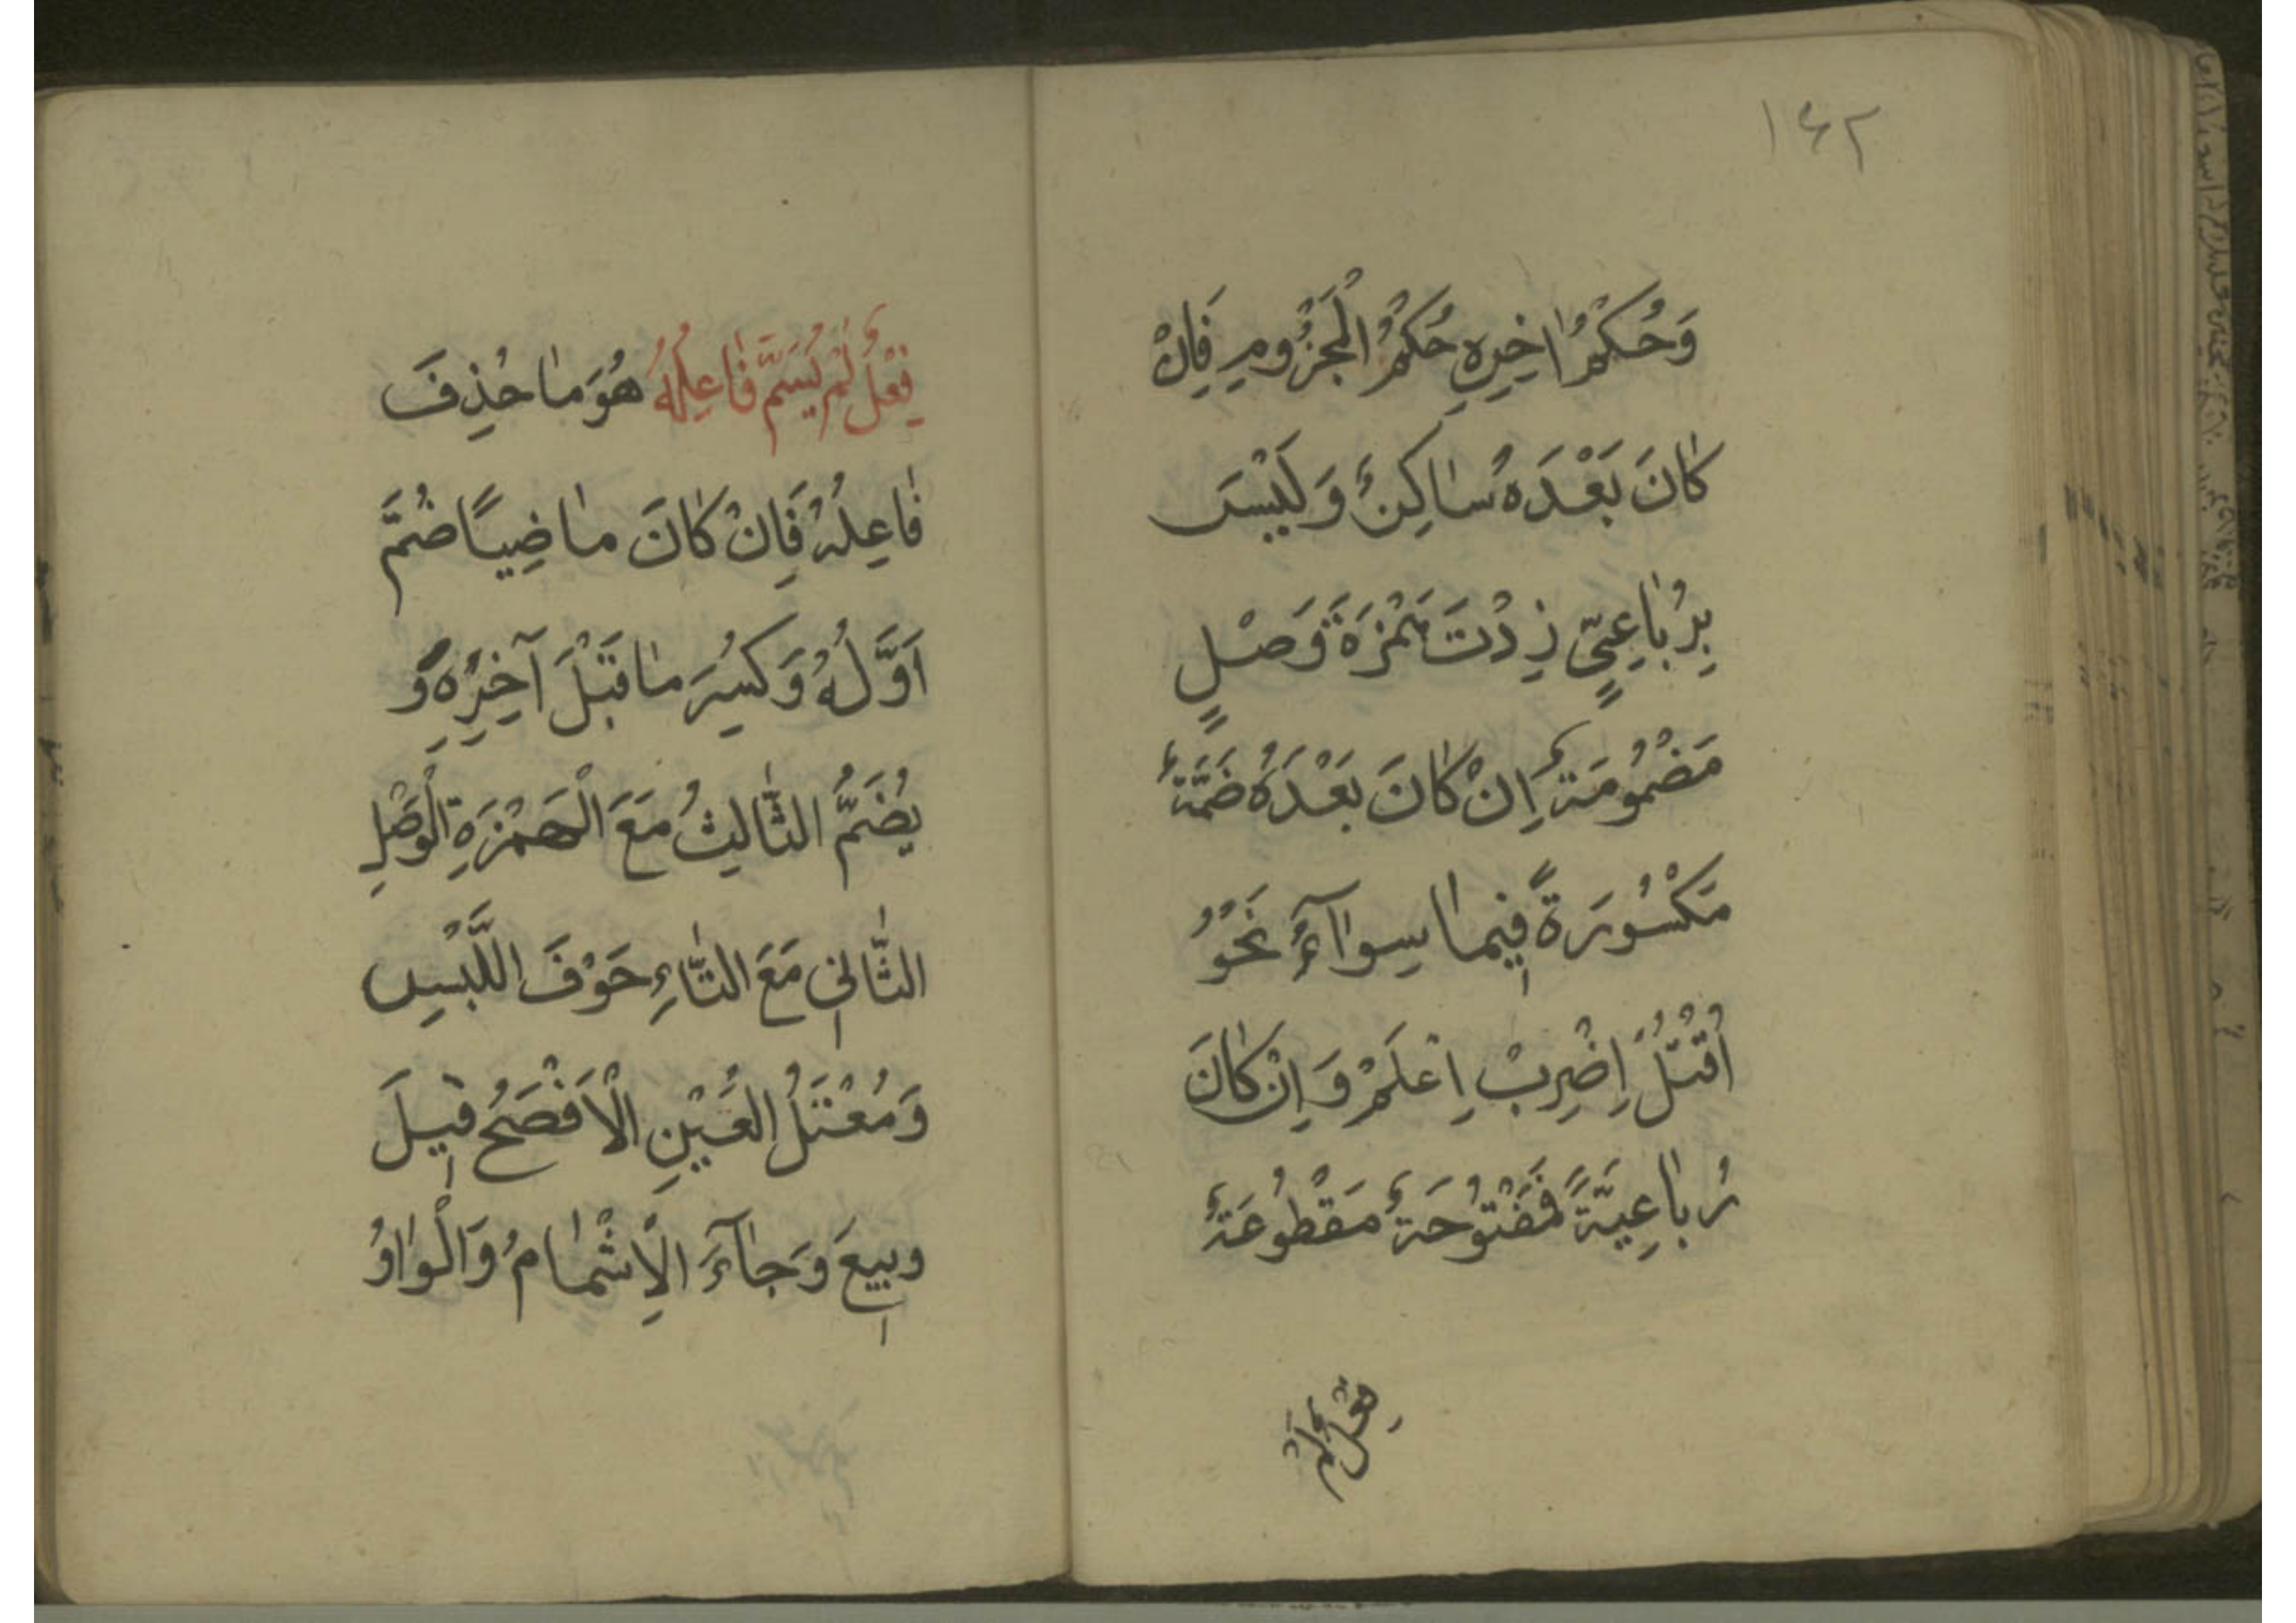 ۱۴۲
وَحُكْمُ اٰخِرِهِ حُكْمُ الْمَجْزُومِ فَاِنْ
كٰانَ بَعْدَهُ سٰاكِنٌ وَلَيْسَ
بِرُبٰاعِيٍّ زِدْتَ هَمْزَةَ وَصْلٍ
مَضْمُومَةً اِنْ كٰانَ بَعْدَهُ ضَمَّةٌ
مَكْسُورَةً فِيمٰا سِوٰاءٌ نَحْوُ
اُقْتُلْ اِضْرِبْ اِعْلَمْ وَاِنْ كٰانَ
رُبٰاعِيَّةً فَمَفْتُوحَةٌ مَقْطُوعَةٌ
فِعْلُ لَمْ
فِعْلُ لَمْ يُسَمَّ فٰاعِلُهُ هُوَ مٰا حُذِفَ
فٰاعِلُهُ فَاِنْ كٰانَ مٰاضِيًا ضُمَّ
اَوَّلُهُ وَكُسِرَ مٰا قَبْلَ آخِرِهِ وَ
يُضَمُّ الثّٰالِثُ مَعَ الْهَمْزَةِ الْوَصْلِ
الثّٰانِي مَعَ التّٰاءِ خَوْفَ اللَّبْسِ
وَمُعْتَلُّ الْعَيْنِ الْاَفْصَحُ قِيلَ
وَبِيعَ وَجٰآءَ الْاِشْمٰامُ وَالْوٰاوُ